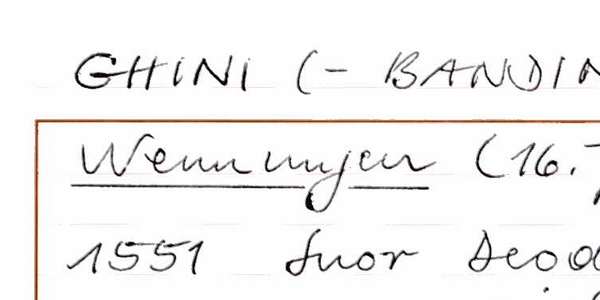 GHINI (- BANDIN
Nennungen (16.
1551 Suor Deod